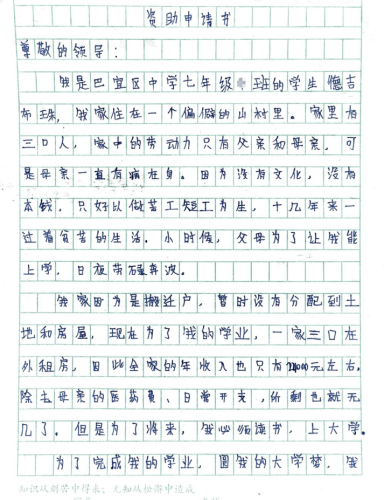 资助申请书
尊敬的领导：
我是巴宜区中学七年级 班的学生德吉
布珠，我家住在一个偏僻的山村里。家里有
三口人，家中的劳动力只有父亲和母亲，可
是母亲一直有病在身。因为没有文化，没有
本钱，只好以做苦工短工为生，十几年来一
过着贫苦的生活。小时候，父母为了让我能
上学，日夜劳碌奔波。
我家因为是搬迁户，暂时没有分配到土
地和房屋，现在为了我的学业，一家三口在
外租房，因此全家的年收入也只有 元左右。
除去母亲的医药费、日常开支，所剩也就无
几了。但是为了将来，我必须读书，上大学。
为了完成我的学业，圆我的大学梦，我
知识从刻苦中得来；无知从松游中造成